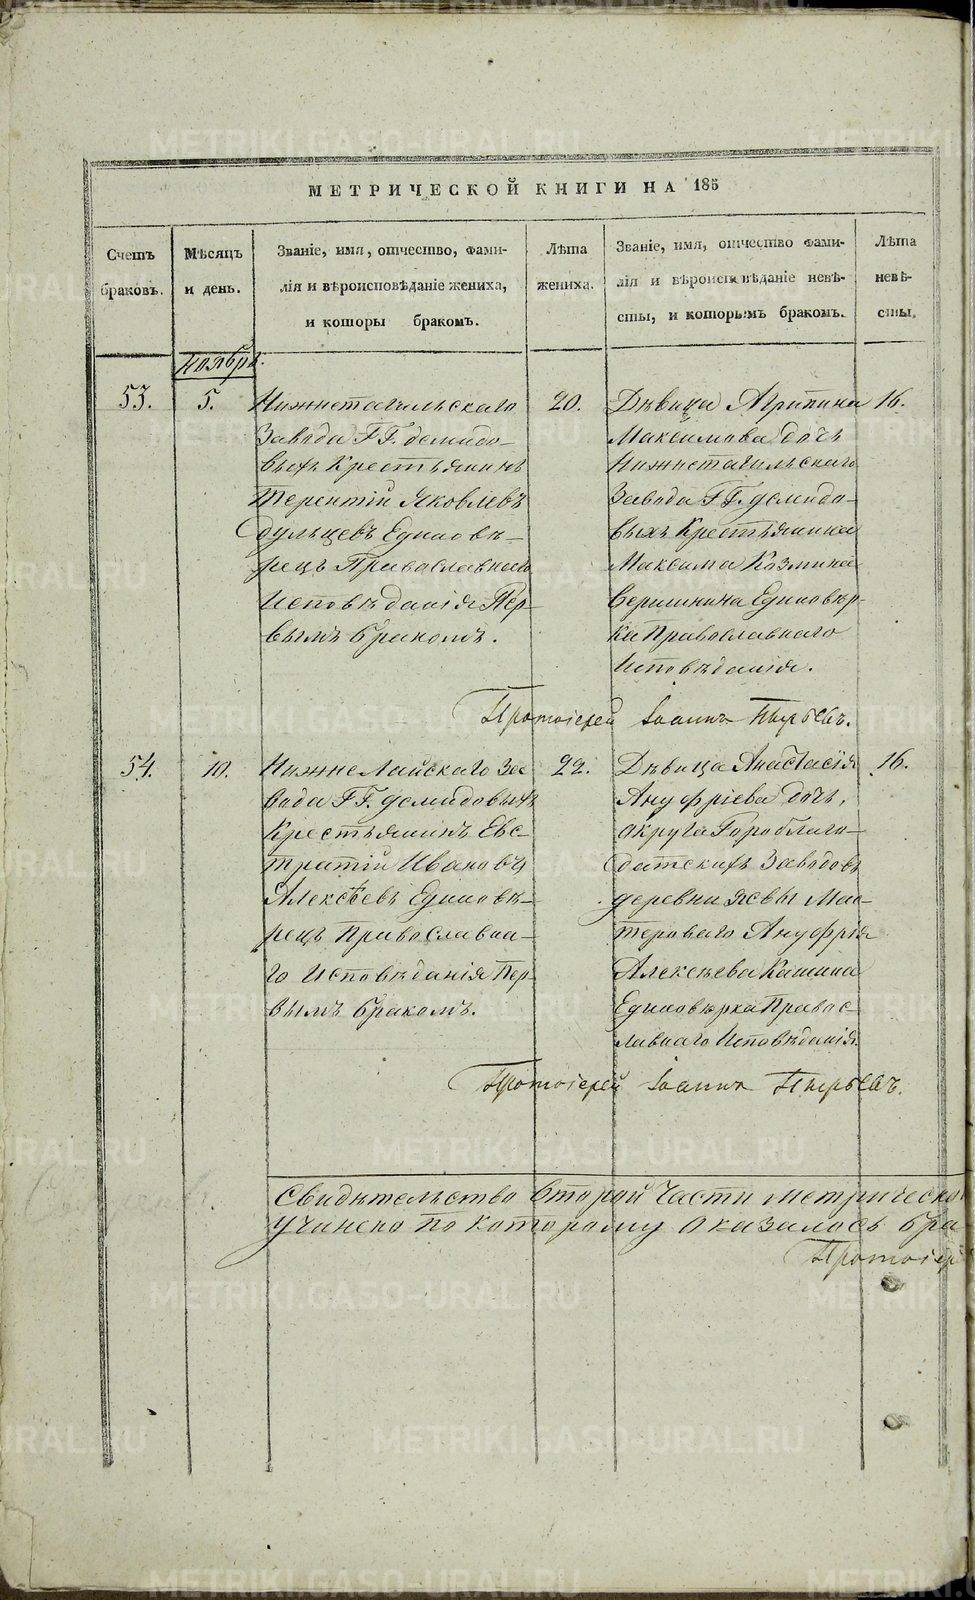 МЕТРИЧЕСКОЙ КНИГИ НА 185
Счетъ браковъ.
Мѣсяцъ и день.
Званіе, имя, отчество, фами-
лія и вѣроисповѣданіе жениха,
и которы бракомъ.
Лѣта жениха.
Званіе, имя, отчество фами-
лія и вѣроисповѣданіе невѣ-
сты, и которымъ бракомъ.
Лѣта невѣ-
сты.
Ноябрь.
53.
5.
Нижнетагильскаго
Завода ГГ. Демидо-
выхъ Крестьянинъ
Терентій Яковлевъ
Сдульцевъ Единовѣ-
рецъ Православнаго
Исповѣданія Пер-
вымъ бракомъ.
20.
Дѣвица Агрипина
Максимова дочь
Нижнетагильскаго
Завода ГГ. Демидо-
выхъ Крестьянина
Максима Козмина
Единовѣр-
ка Православнаго
Исповѣданія.
16.
Протоіерей Іоаннъ Пырьевъ.
54.
10.
Нижнелайскаго За-
вода ГГ. Демидовыхъ
Крестьянинъ Евс-
тратій Ивановъ
Алексѣевъ Единовѣ-
рецъ Православна-
го Исповѣданія Пер-
вымъ бракомъ.
22.
Дѣвица Анастасія
Ануфріева дочь,
округа Гороблаго-
датскихъ Заводовъ
деревни Ясвы Мас-
тероваго Ануфрія
Алексѣева Кашина
Единовѣрка Правос-
лавнаго Исповѣданія.
16.
Протоіерей Іоаннъ Пырьевъ.
Свидѣтельство второй части метрическо
учинено по которому оказалось бра
Протоіер
METRIKI.GASO-URAL.RU